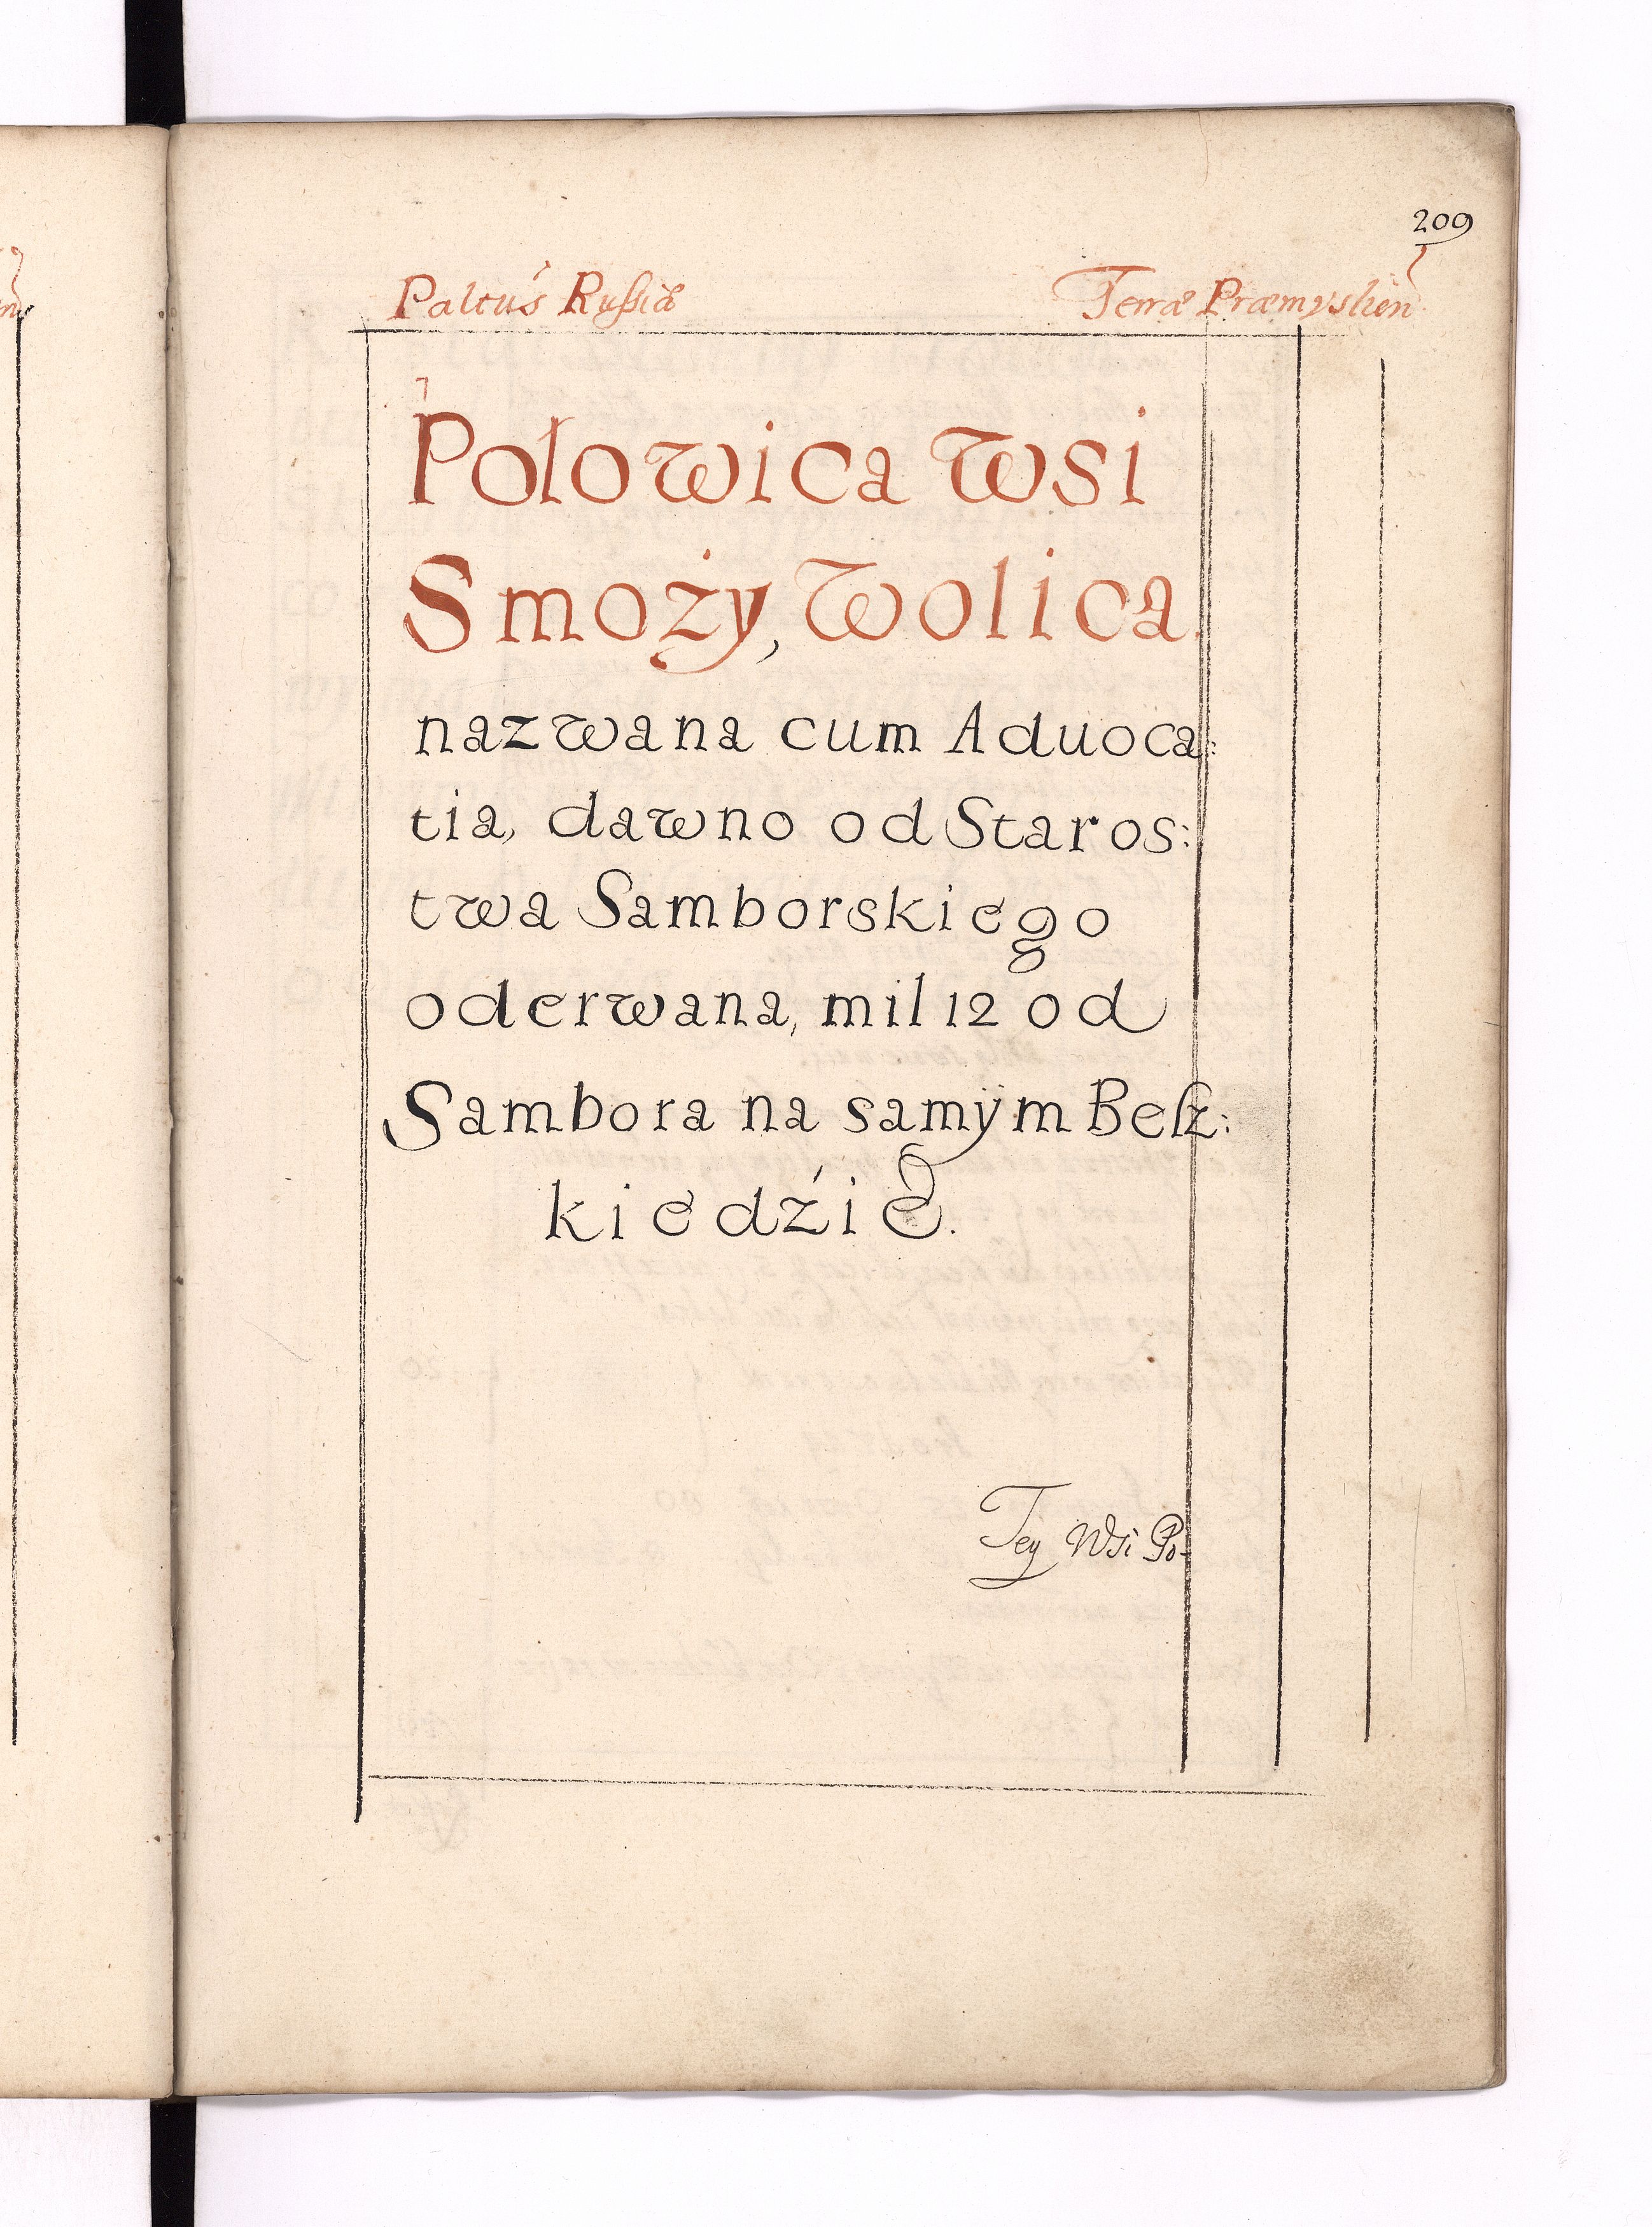 209
Paltus Russiæ Terræ Præmysliен̃
Połowica Wsi
Smoży, Wolica.
nazwana cum Aduoca:
tia, dawno od Staros:
twa Samborskiego
oderwana, mil 12 od
Sambora na samÿm Besz:
kiedźie.
Tey Wsi Po-